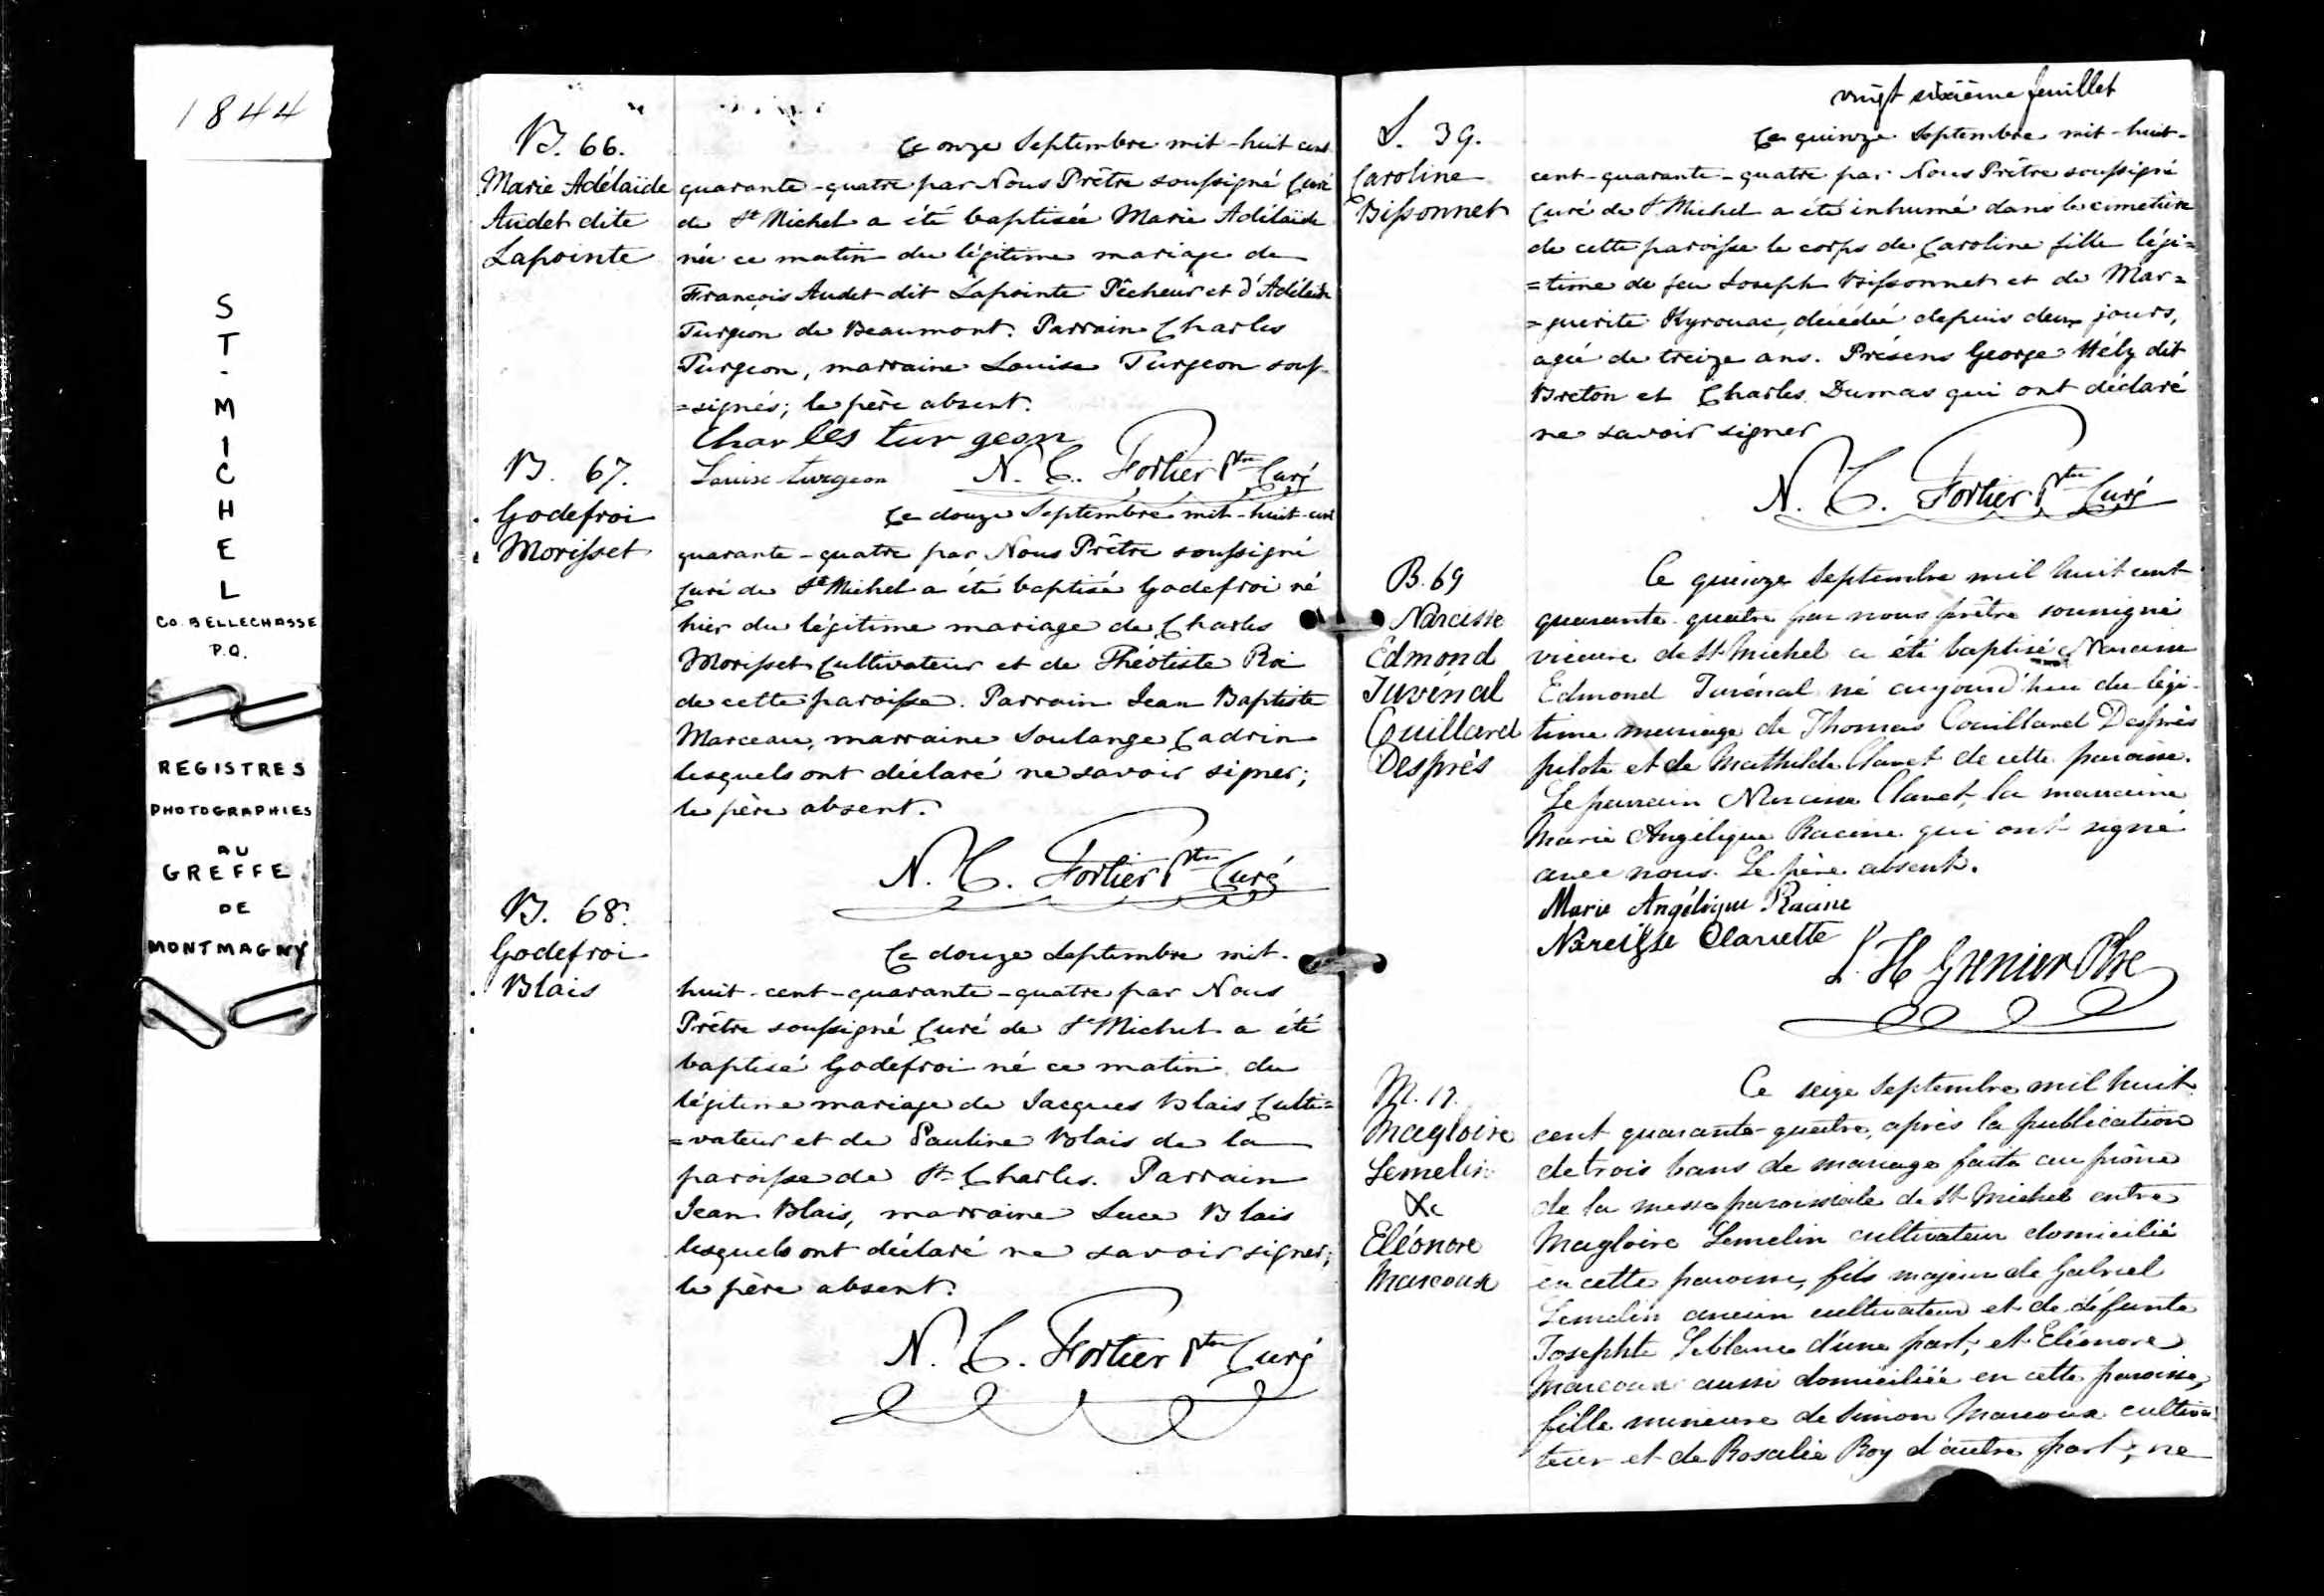 1844
ST-MICHEL
CO. BELLECHASSE
P.Q.
REGISTRES
PHOTOGRAPHIES
AU
GREFFE
DE
MONTMAGNY
B. 66.
Marie Adélaïde
Audet dite
Lapointe
Ce onze Septembre mil-huit cent
quarante-quatre par Nous Prêtre soussigné Curé
de St Michel a été baptisée Marie Adélaïde
née ce matin du légitime mariage de
François Audet dit Lapointe Pêcheur et d'Adélaïde
Turgeon de Beaumont. Parrain Charles
Turgeon, marraine Louise Turgeon sous-
=signés; le père absent.
Charles turgeon
Louise turgeon N. C. Fortier Ptre Curé
B. 67.
Godefroi
Morisset
Ce douze Septembre mil-huit-cent
quarante-quatre par Nous Prêtre soussigné
Curé de St Michel a été baptisé Godefroi né
hier du légitime mariage de Charles
Morisset Cultivateur et de Théotiste Roi
de cette paroisse. Parrain Jean Baptiste
Marceau, marraine Soulange Cadrin
lesquels ont déclaré ne savoir signer;
le père absent.
N. C. Fortier Ptre Curé
B. 68.
Godefroi
Blais
Ce douze Septembre mil-
huit-cent-quarante-quatre par Nous
Prêtre soussigné Curé de St Michel a été
baptisé Godefroi né ce matin du
légitime mariage de Jacques Blais Culti=
=vateur et de Pauline Blais de la
paroisse de St Charles. Parrain
Jean Blais, marraine Luce Blais
lesquels ont déclaré ne savoir signer;
le père absent.
N. C. Fortier Ptre Curé
vingt sixième feuillet
S. 39.
Caroline
Bissonnet
Ce quinze Septembre mil-huit-
cent-quarante-quatre par Nous Prêtre soussigné
Curé de St Michel a été inhumé dans le cimetière
de cette paroisse le corps de Caroline fille légi=
=time de feu Joseph Bissonnet et de Mar=
=guerite Kyrouac, décédée depuis deux jours,
agée de treize ans. Présens George Hély dit
Breton et Charles Dumas qui ont déclaré
ne savoir signer
N. C. Fortier Ptre Curé
B. 69
Narcisse
Edmond
Juvénal
Couillard
Després
Ce quinze Septembre mil huit cent
quarante quatre par nous prêtre soussigné
vicaire de St Michel a été baptisé Narcisse
Edmond Juvénal né aujourd'hui du légi-
time mariage de Thomas Couillard Després
pilote et de Mathilde Clavet de cette paroisse.
Le parrain Narcisse Clavet, la marraine
Marie Angélique Racine qui ont signé
avec nous. Le père absent.
Marie Angélique Racine
Narcisse Clavette
L. H Grenier Ptre
M. 17.
Magloire
Lemelin
&
Eléonore
Marcoux
Ce seize Septembre mil huit
cent quarante-quatre, après la publication
de trois bans de mariage faite au prône
de la messe paroissiale de St Michel entre
Magloire Lemelin cultivateur domicilié
en cette paroisse, fils majeur de Gabriel
Lemelin ancien cultivateur et de défunte
Josephte Leblanc d'une part; et Eléonore
Marcoux aussi domiciliée en cette paroisse,
fille mineure de Simon Marcoux cultiva
teur et de Rosalie Roy d'autre part; ne